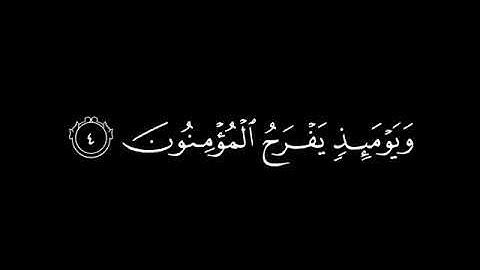 وَيَوْمَئِذٍ يَفْرَحُ الْمُؤْمِنُونَ ٤